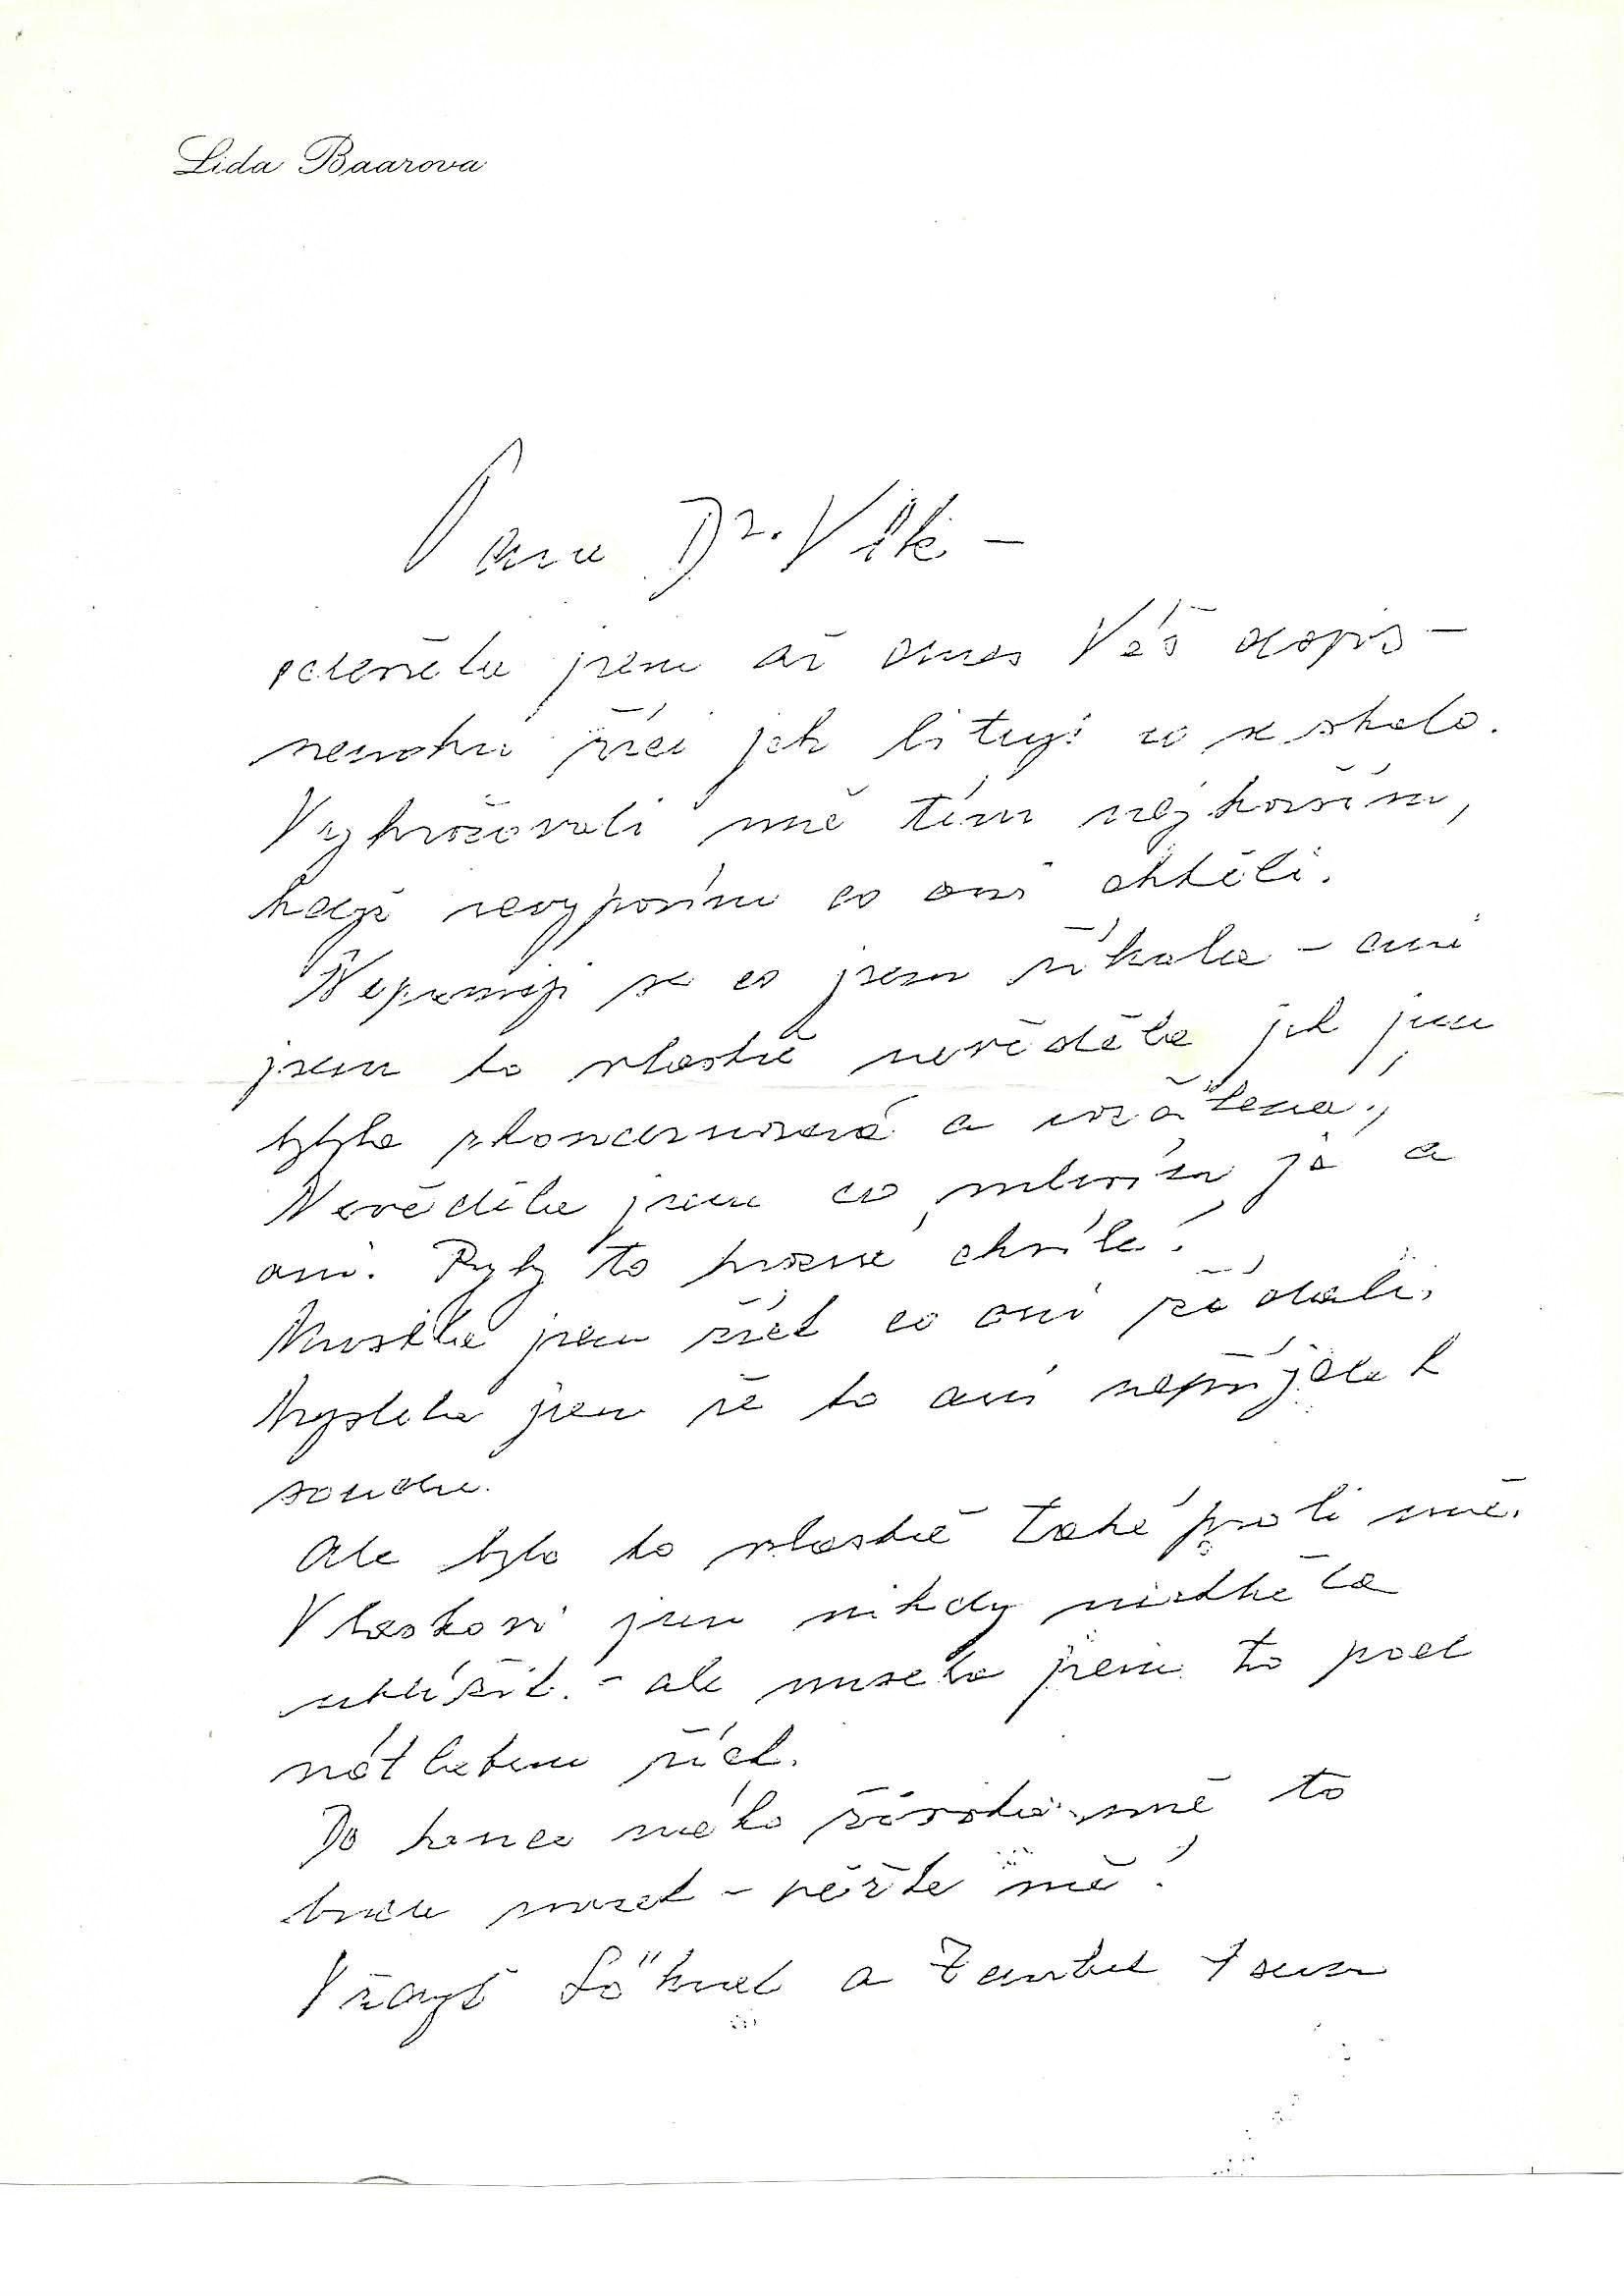 Lida Baarova
Pane Dr. Vlk —
jsem až dnes Váš dopis —
nemohu říci jak lituji co se stalo.
Vyhrožovali mně tím nejhorším,
když nevypovím co oni chtěli.
Nepamuji se co jsem říkala — ani
jsem to vlastně nevěděla jak jsem
byla a
Nevěděla jsem co mluvím já a
oni. Byly to hrozné chvíle!
Musela jsem říct co oni žádali.
Myslela jsem že to ani nepřijde k
soudu.
Ale bylo to vlastně také proti mně.
Vlastovi jsem nikdy nechtěla
ublížit. — ale musela jsem to pod
nátlakem říct.
Do konce mého života mně to
bude mrzet — věřte mně!
Vždyť a jsem